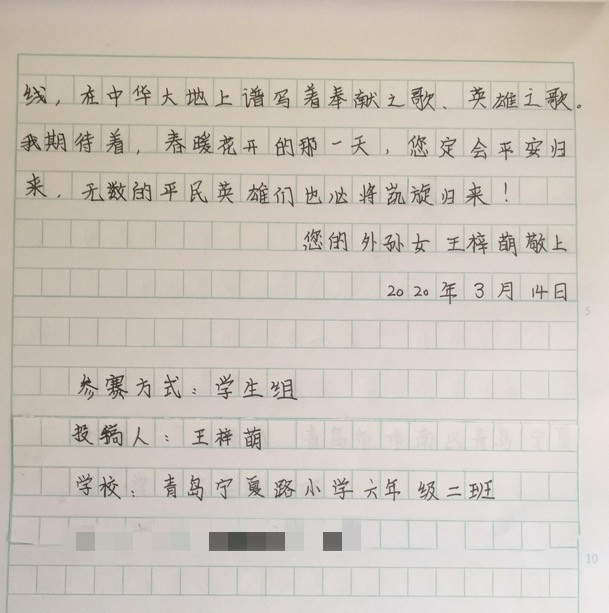 线，在中华大地上谱写着奉献之歌、英雄之歌。
我期待着，春暖花开的那一天，您定会平安归
来，无数的平民英雄们也必将凯旋归来！
您的外孙女王梓萌敬上
2020年3月14日
参赛方式：学生组
投稿人：王梓萌
学校：青岛宁夏路小学六年级二班
5
10